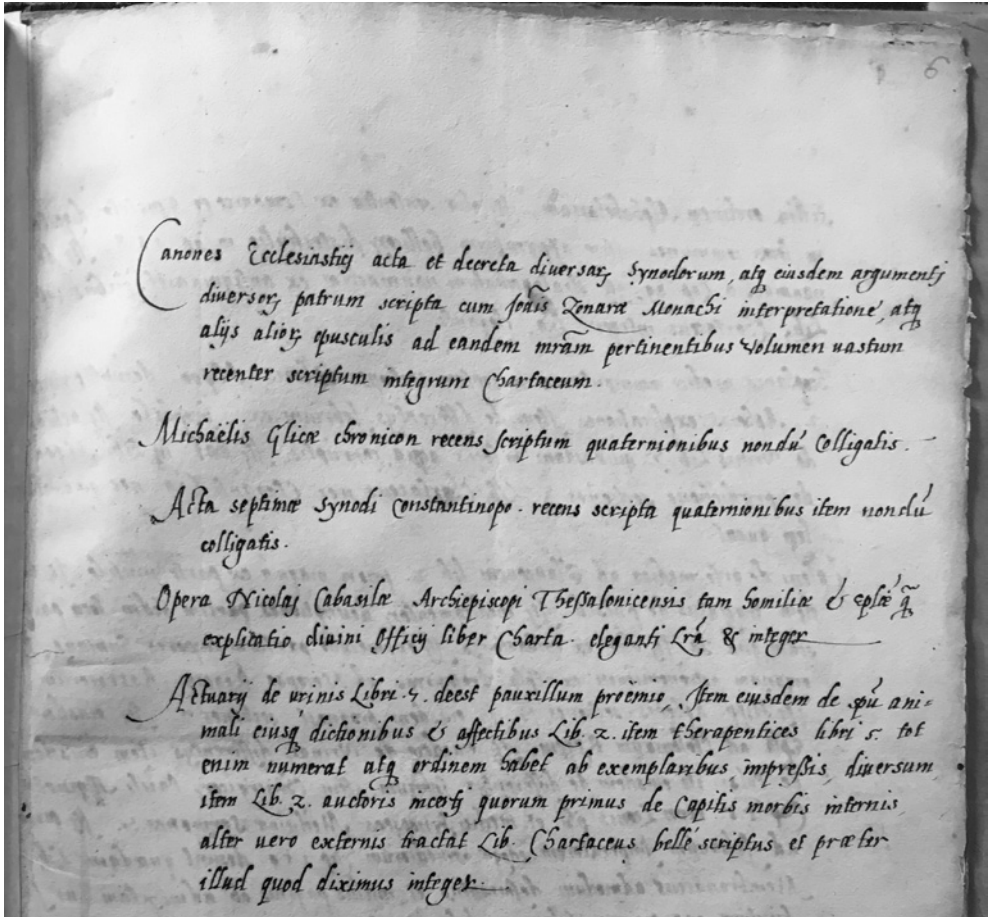 6
Canones Ecclesiasticj acta et decreta diuersarȝ Synodorum, atq̃ eiusdem argumentj
diuersorȝ patrum scripta cum Joãis Zonaræ Monachi interpretatione, atq̃
alijs aliorȝ opusculis ad eandem mr̃am pertinentibus Volumen uastum
recenter scriptum integrum Chartaceum.
Michaëlis Glicæ chronicon recens scriptum quaternionibus nondũ Colligatis.
Acta septimæ Synodi Constantinopo. recens scripta quaternionibus item nondũ
colligatis.
Opera Nicolaj Cabasilæ Archiepiscopi Thessalonicensis tam homiliæ & eplæ̃ q̃
explicatio diuini Officij liber Charta. eleganti Lr̃a & integer
Actuarij de vrinis Libri .7. deest pauxillum proemio, Item eiusdem de spũ ani=
mali eiusq̃ dictionibus & affectibus Lib. 2. item therapentices libri 5. tot
enim numerat atq̃ ordinem habet ab exemplaribus impressis diuersum
item Lib. 2. auctoris incertj quorum primus de Capitis morbis internis
alter uero externis tractat Lib. Chartaceus bellé scriptus et præter
illud quod diximus integer.